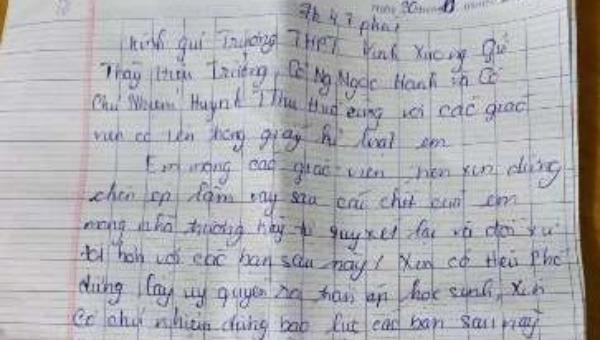 7h 47 phút
Kính gửi Trường THPT Vĩnh Xương Gửi
Thầy Hiệu Trưởng, Cô Ng Ngọc Hạnh và Cô
Chủ Nhiệm Huỳnh Thu Huệ cùng với các giáo
viên có tên trong giấy kỉ luật em
Em mong các giáo viên nên xin đừng
chèn ép lắm vay sau cái chết của em
mong nhà trường hãy tự quyết lại và đối xử
tốt hơn với các bạn sau này! Xin cô Hiệu Phó
đừng lấy uy quyền ra đàn áp học sinh, xin
Cô chủ nhiệm đừng bạo lực các bạn sau này